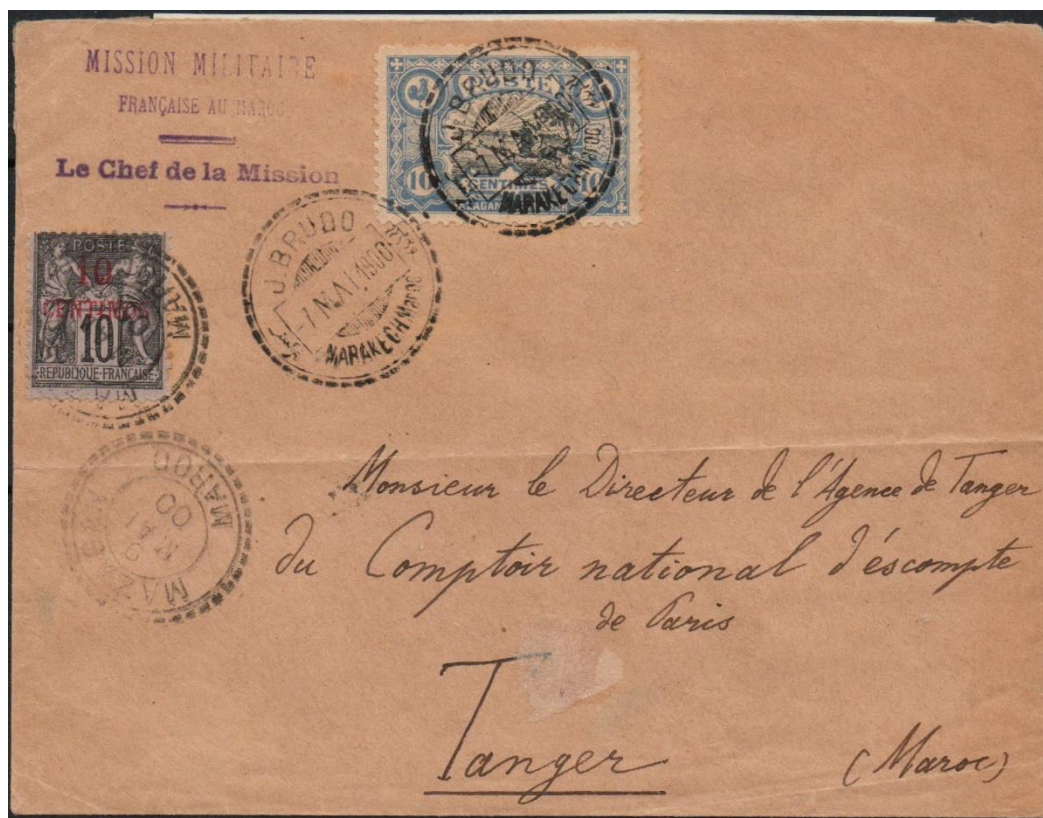 MISSION MILITAIRE
FRANÇAISE AU MAROC
Le Chef de la Mission
POSTE
10 CENTIMES 10
J. BRUDO
MARAKECH MAROC
J. BRUDO
MARAKECH MAROC
POSTE
10
CENTIMOS
10
REPUBLIQUE FRANÇAISE
MAROC
MAROC
MAI
00
Monsieur le Directeur de l'Agence de Tanger
du Comptoir national d'éscompte
de Paris
Tanger
(Maroc)